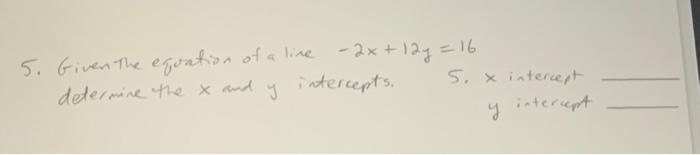 5. Given the equation of a line -2x + 12y = 16
determine the x and y intercepts.
5. x intercept
y intercept